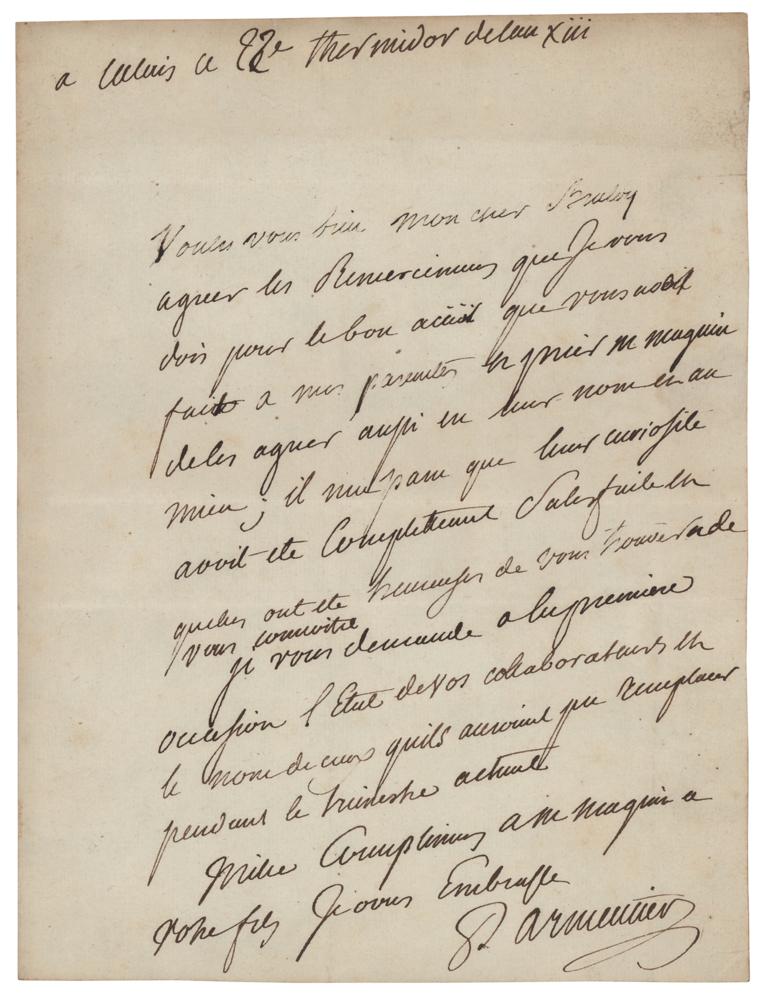 a Calais ce 22e thermidor de lan xiii
Voulez vous bien mon cher
agreer les Remerciemens que Je vous
dois pour le bon acüeil que vous avéz
fait a mes parentes et prier m maquin
de les agreer aussi en leur nom et au
mien; il me paru que leur curiosité
avoit ete Complettement Satisfaite et
quelles ont ete heureuses de vous trouver
vous connoitre
je vous demande a la premiere
occasion l'Etat de vos collaborateurs et
le nom de ceux quils auroient pu remplacer
pendant le trimestre actuel
Mille Complimens a m maquin a
votre fils Je vous Embrasse
Parmentier